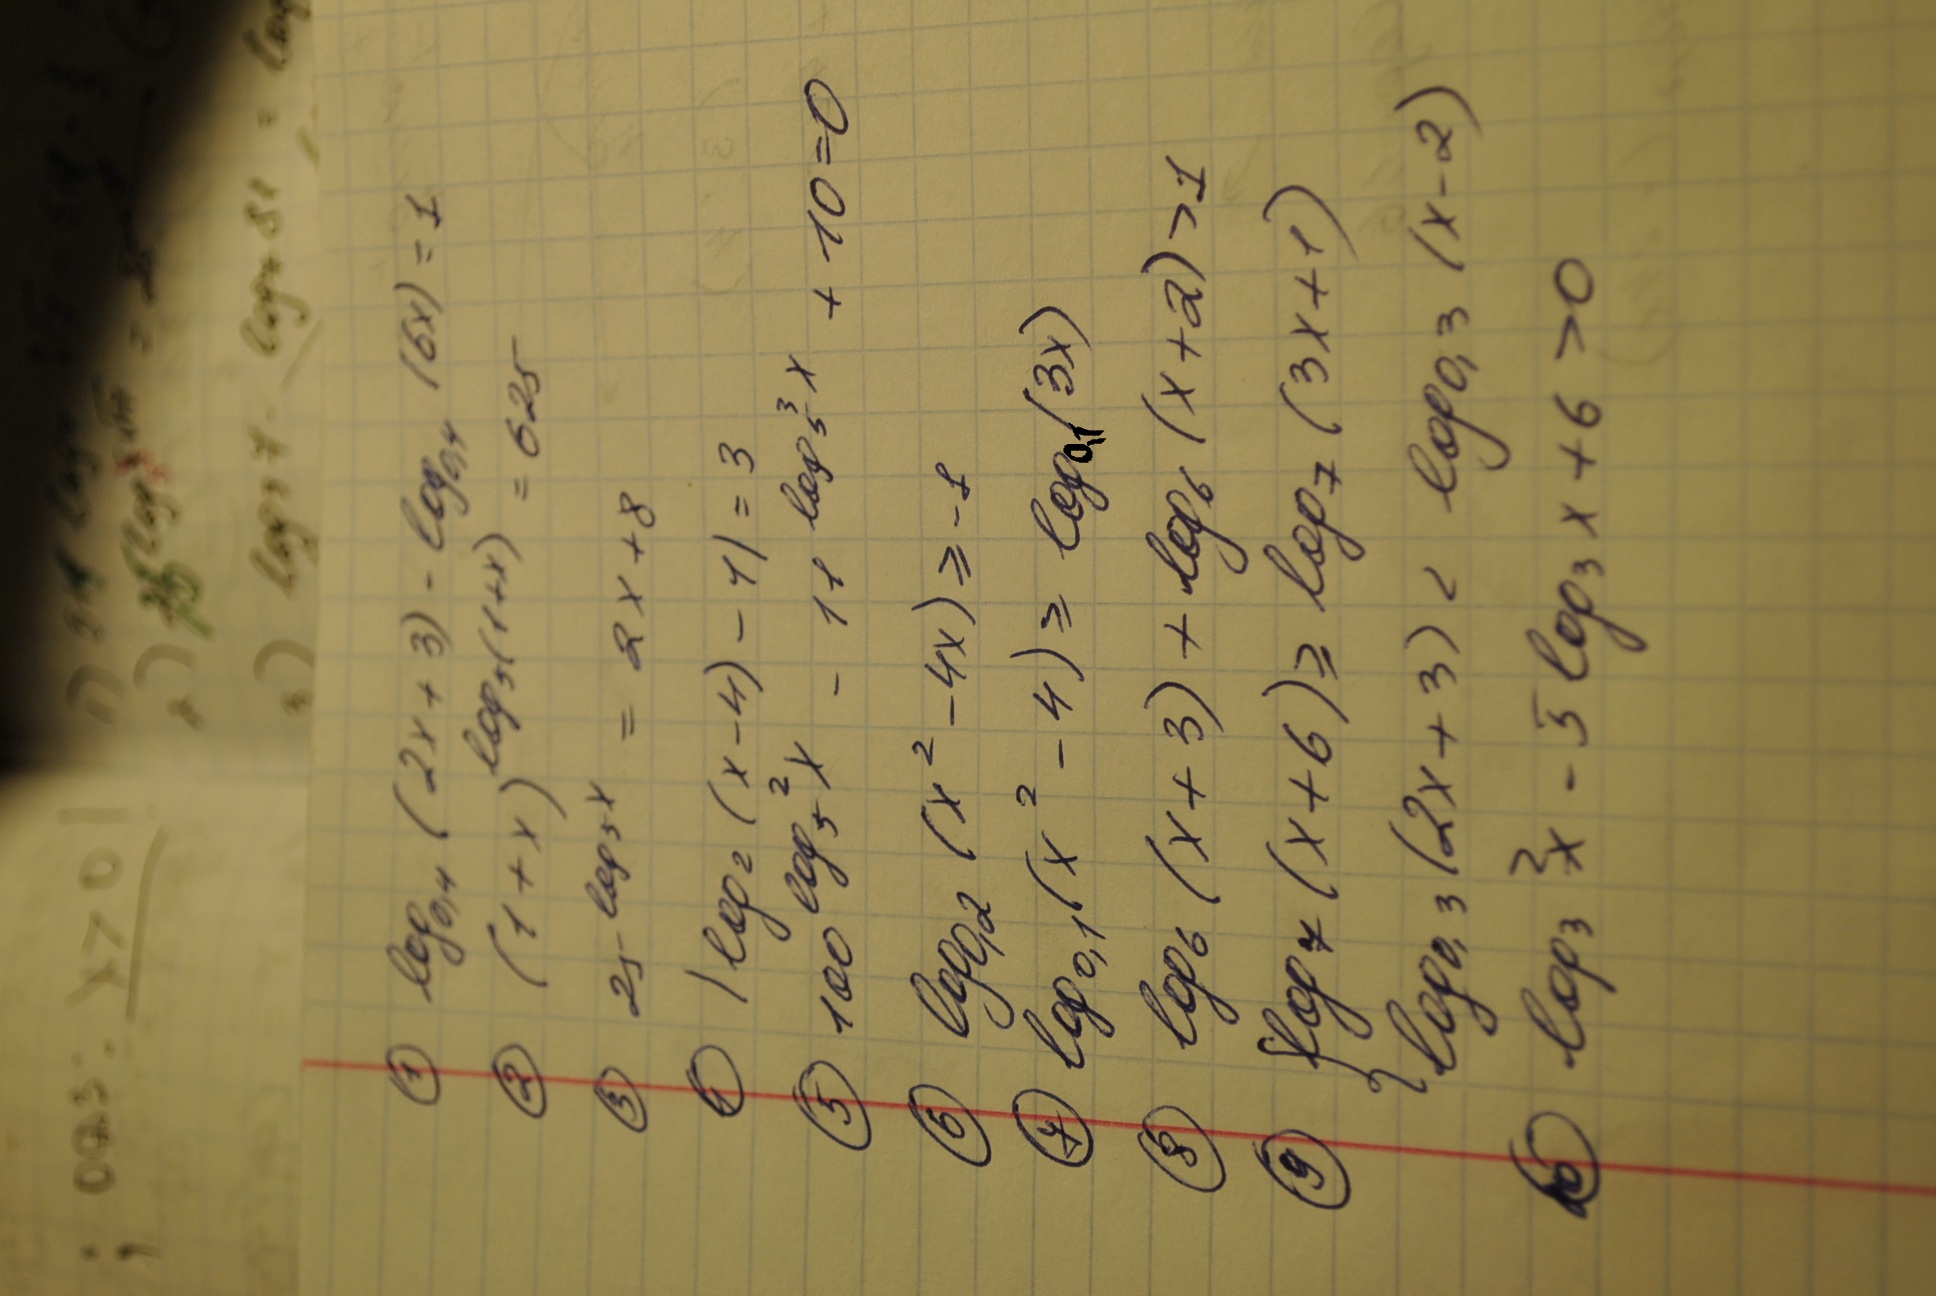 ① log₀,₄ (2x + 3) - log₀,₄ (6x) = 1
② (1 + x)^log₅(1+x) = 625
③ 25^log₅x = 2x + 8
④ | log₂ (x - 4) - 1 | = 3
⑤ 100 log₅²x² - 11 log₅³x + 10 = 0
⑥ log₀,₂ (x² - 4x) ≥ -1
⑦ log₀,₁ (x² - 4) ≥ log₀,₁ (3x)
⑧ log₆ (x + 3) + log₆ (x + 2) > 1
⑨ { log₇ (x + 6) ≥ log₇ (3x + 1)
log₀,₃ (2x + 3) < log₀,₃ (x - 2)
⑩ log₃²x - 5 log₃ x + 6 > 0
; ОДЗ: x > 0